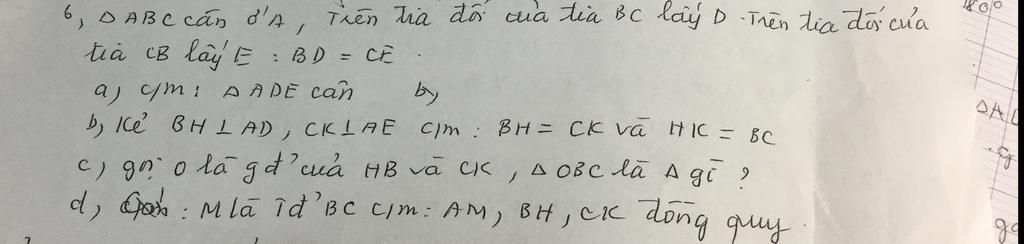 6, Δ ABC cân ở A, Trên tia đối của tia BC lấy D. Trên tia đối của
tia CB lấy E : BD = CE.
a) c/m : Δ ADE cân b)
b, Kẻ BH ⊥ AD, CK ⊥ AE c/m : BH = CK và HK = BC
c) gọi O là gđ' của HB và CK, Δ OBC là Δ gì ?
d, : M là Tđ' BC c/m : AM, BH, CK đồng quy.